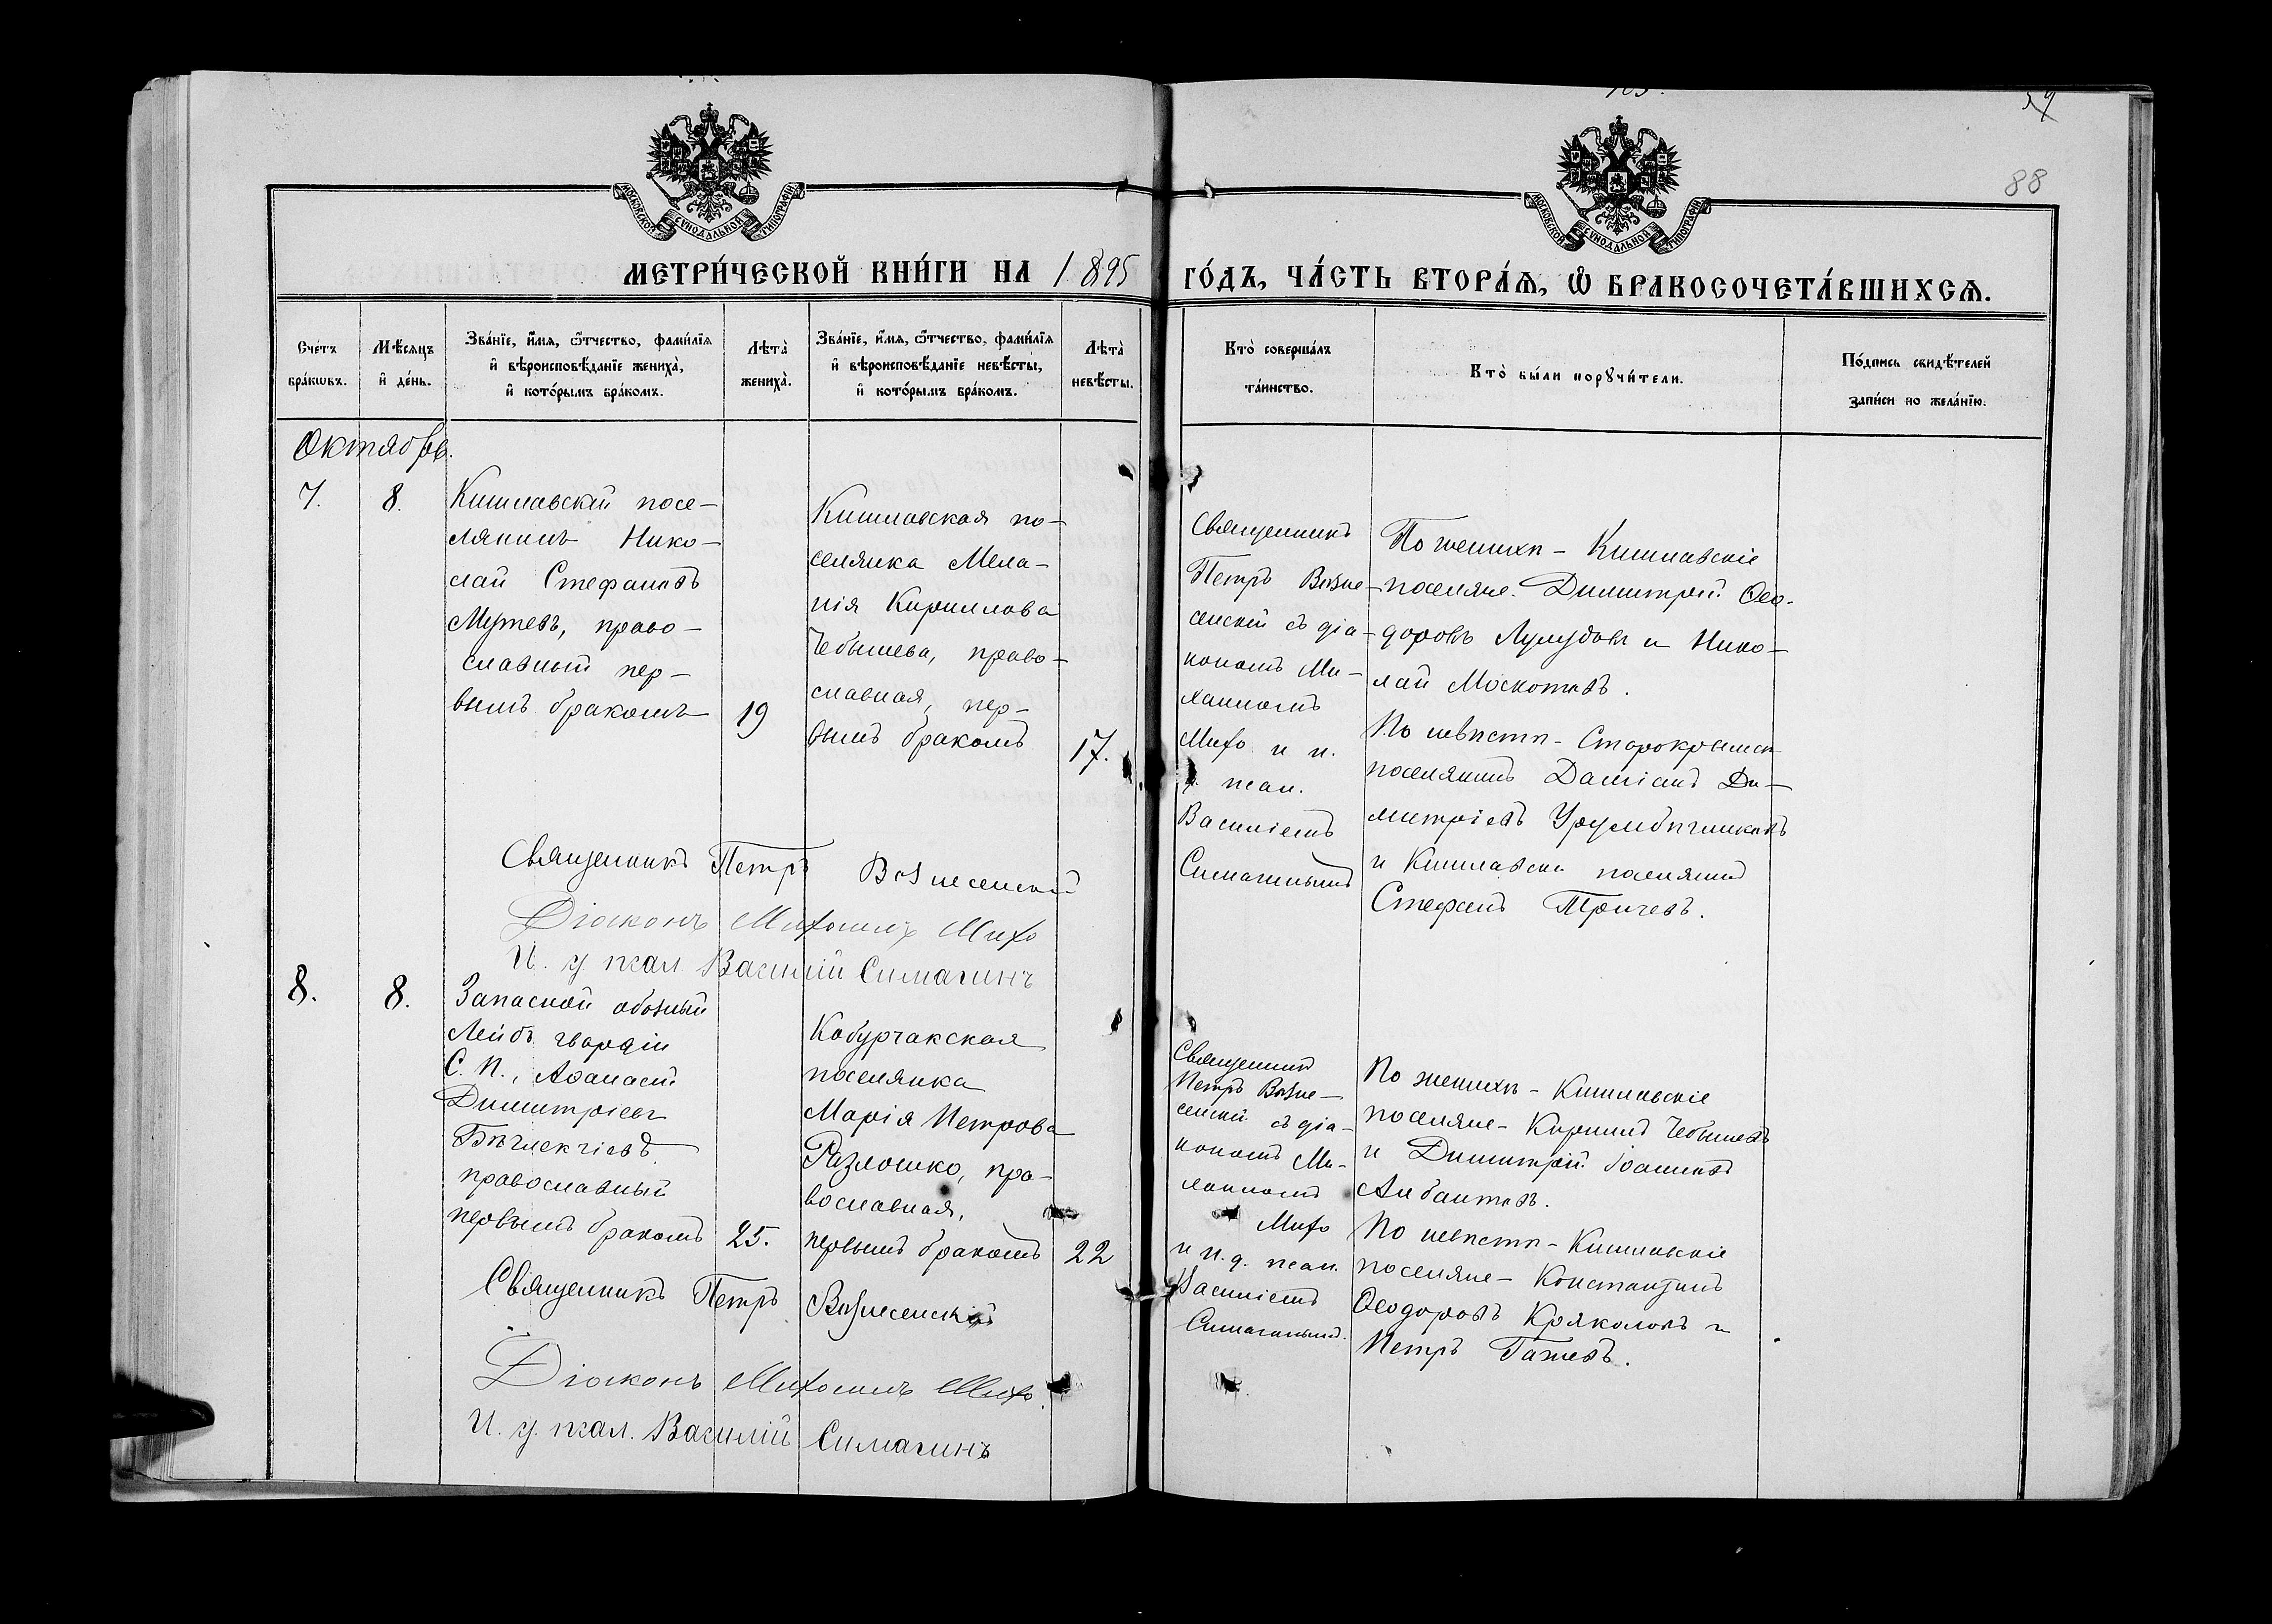 59
88
МОСКОВСКОЙ СѴНОДАЛЬНОЙ ТИПОГРАФІИ
МОСКОВСКОЙ СѴНОДАЛЬНОЙ ТИПОГРАФІИ
МЕТРИ́ЧЕСКОЙ КНИ́ГИ НА 1895 ГО́ДЪ, ЧА́СТЬ ВТОРА́Ѧ, Ѽ БРАКОСОЧЕТА́ВШИХСѦ.
Сче́тъ
бра́кѡвъ.
Мѣ́сяцъ
и҆ де́нь.
Зва́нїе, и҆́мѧ, ѻ҆́тчество, фами́лїѧ
и҆ вѣроисповѣ́данїе жениха̀,
и҆ кото́рымъ бра́комъ.
Лѣта̀
жениха̀.
Зва́нїе, и҆́мѧ, ѻ҆́тчество, фами́лїѧ
и҆ вѣроисповѣ́данїе невѣ́сты,
и҆ кото́рымъ бра́комъ.
Лѣта̀
невѣ́сты.
Кто̀ соверша́лъ
та́инство.
Кто̀ бы́ли порꙋчи́тели.
По́дпись свидѣ́телей
за́писи по жела́нїю.
Октябрь.
7.
8.
Кишлавскій посе-
лянинъ Нико-
лай Стефановъ
Мутевъ, право-
славный пер-
вымъ бракомъ
19
Кишлавская по-
селянка Мела-
нія Кириллова
Чебышева, право-
славная, пер-
вымъ бракомъ
17.
Священникъ
Петръ Возне-
сенскій съ діа-
кономъ Ми-
хаиломъ
Михо и и.
д. псал.
Василіемъ
Симагинымъ
По женихѣ - Кишлавскіе
поселяне. Димитрій Ѳео-
доровъ и Нико-
лай Москотевъ.
По невѣстѣ - Старокрымск
поселянинъ Даміанъ Ди-
митріевъ
и Кишлавск поселянинъ
Стефанъ Тричевъ.
Священникъ Петръ Вознесенскій
Діаконъ Михаилъ Михо
И. д. псал. Василій Симагинъ
8.
8.
Запасной обозный
Лейбъ гвардіи
С. П., Аѳанасій
Димитріевъ
Бѣглекчіевъ
православный
первымъ бракомъ
25.
Кабурчакская
поселянка
Марія Петрова
Разлошко, пра-
вославная,
первымъ бракомъ
22
Священникъ
Петръ Возне-
сенскій съ діа-
кономъ Ми-
хаиломъ
Михо
и и. д. псал.
Василіемъ
Симагинымъ.
По женихѣ - Кишлавскіе
поселяне - Кириллъ Чебышевъ
и Димитрій Іоанновъ
Арбаитевъ.
По невѣстѣ - Кишлавскіе
поселяне - Константинъ
Ѳеодоровъ Кряколовъ и
Петръ Гажевъ.
Священникъ Петръ Вознесенскій
Діаконъ Михаилъ Михо.
И. д. псал. Василій Симагинъ